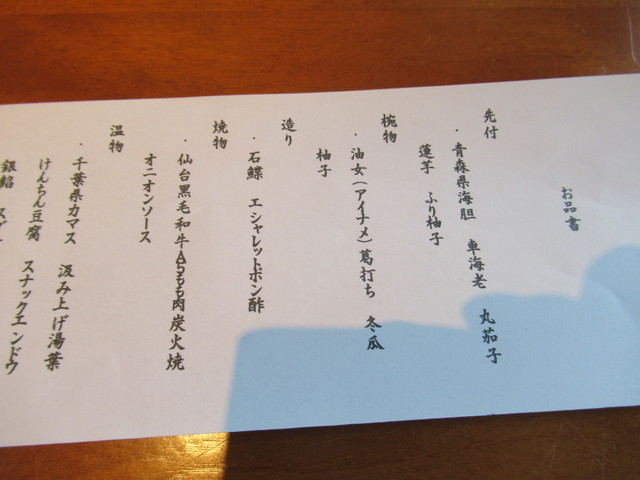 お品書
先付
・青森県海胆　車海老　丸茄子
蓮芋　ふり柚子
椀物
・油女(アイナメ)葛打ち　冬瓜
柚子
造り
・石鰈　エシャレットポン酢
焼物
・仙台黒毛和牛うちもも肉炭火焼
オニオンソース
温物
・千葉県カマス　汲み上げ湯葉
けんちん豆腐　スナックエンドウ
銀餡